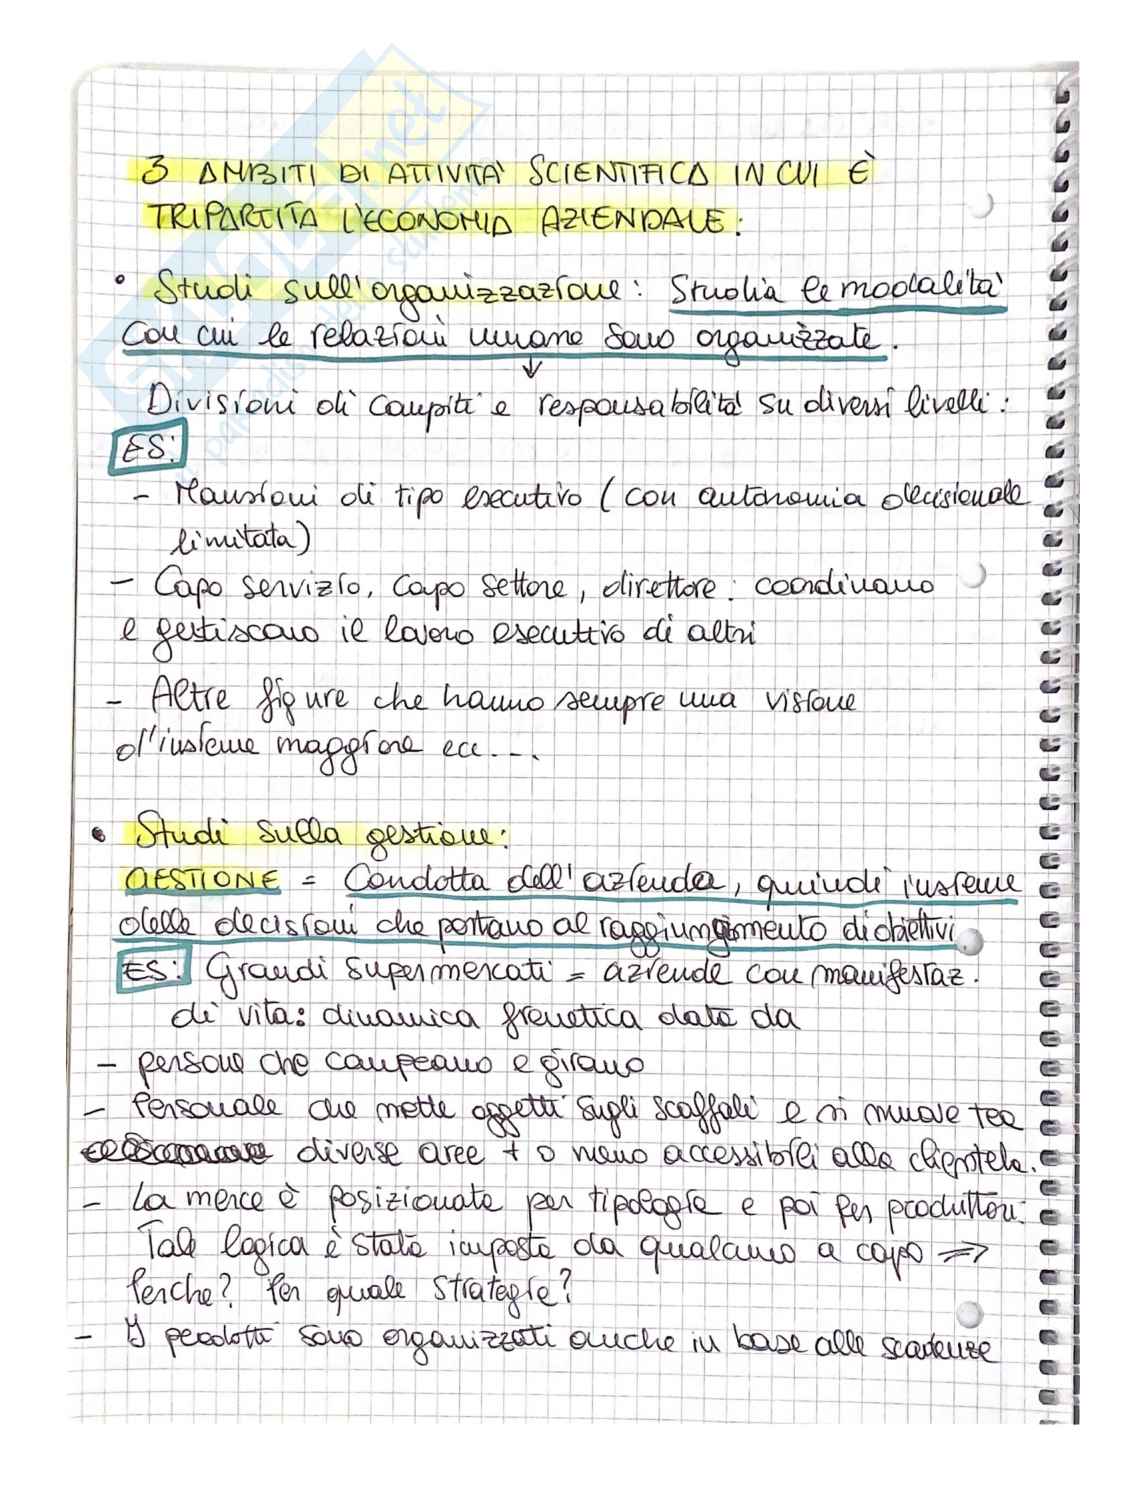 3 AMBITI DI ATTIVITA' SCIENTIFICA IN CUI È
TRIPARTITA L'ECONOMIA AZIENDALE:
• Studi sull'organizzazione: Studia le modalità
con cui le relazioni umane sono organizzate.
↓
Divisioni di compiti e responsabilità su diversi livelli:
ES:
- Mansioni di tipo esecutivo (con autonomia decisionale
limitata)
- Capo servizio, capo settore, direttore: coordinano
e gestiscono il lavoro esecuttivo di altri
- Altre figure che hanno sempre una visione
d'insieme maggiore ecc...
• Studi sulla gestione:
GESTIONE = Condotta dell'azienda, quindi insieme
delle decisioni che portano al raggiungimento di obiettivi.
ES: Grandi supermercati = aziende con manifestaz.
di vita: dinamica frenetica data da
- persone che compeano e girano
- Personale che mette oggetti sugli scaffali e si muove tra
diverse aree + o meno accessibili alla clientela.
- La merce è posizionata per tipologie e poi per produttori.
Tale logica è stata imposta da qualcuno a capo =>
Perche? Per quale strategie?
- I prodotti sono organizzati anche in base alle scadenze